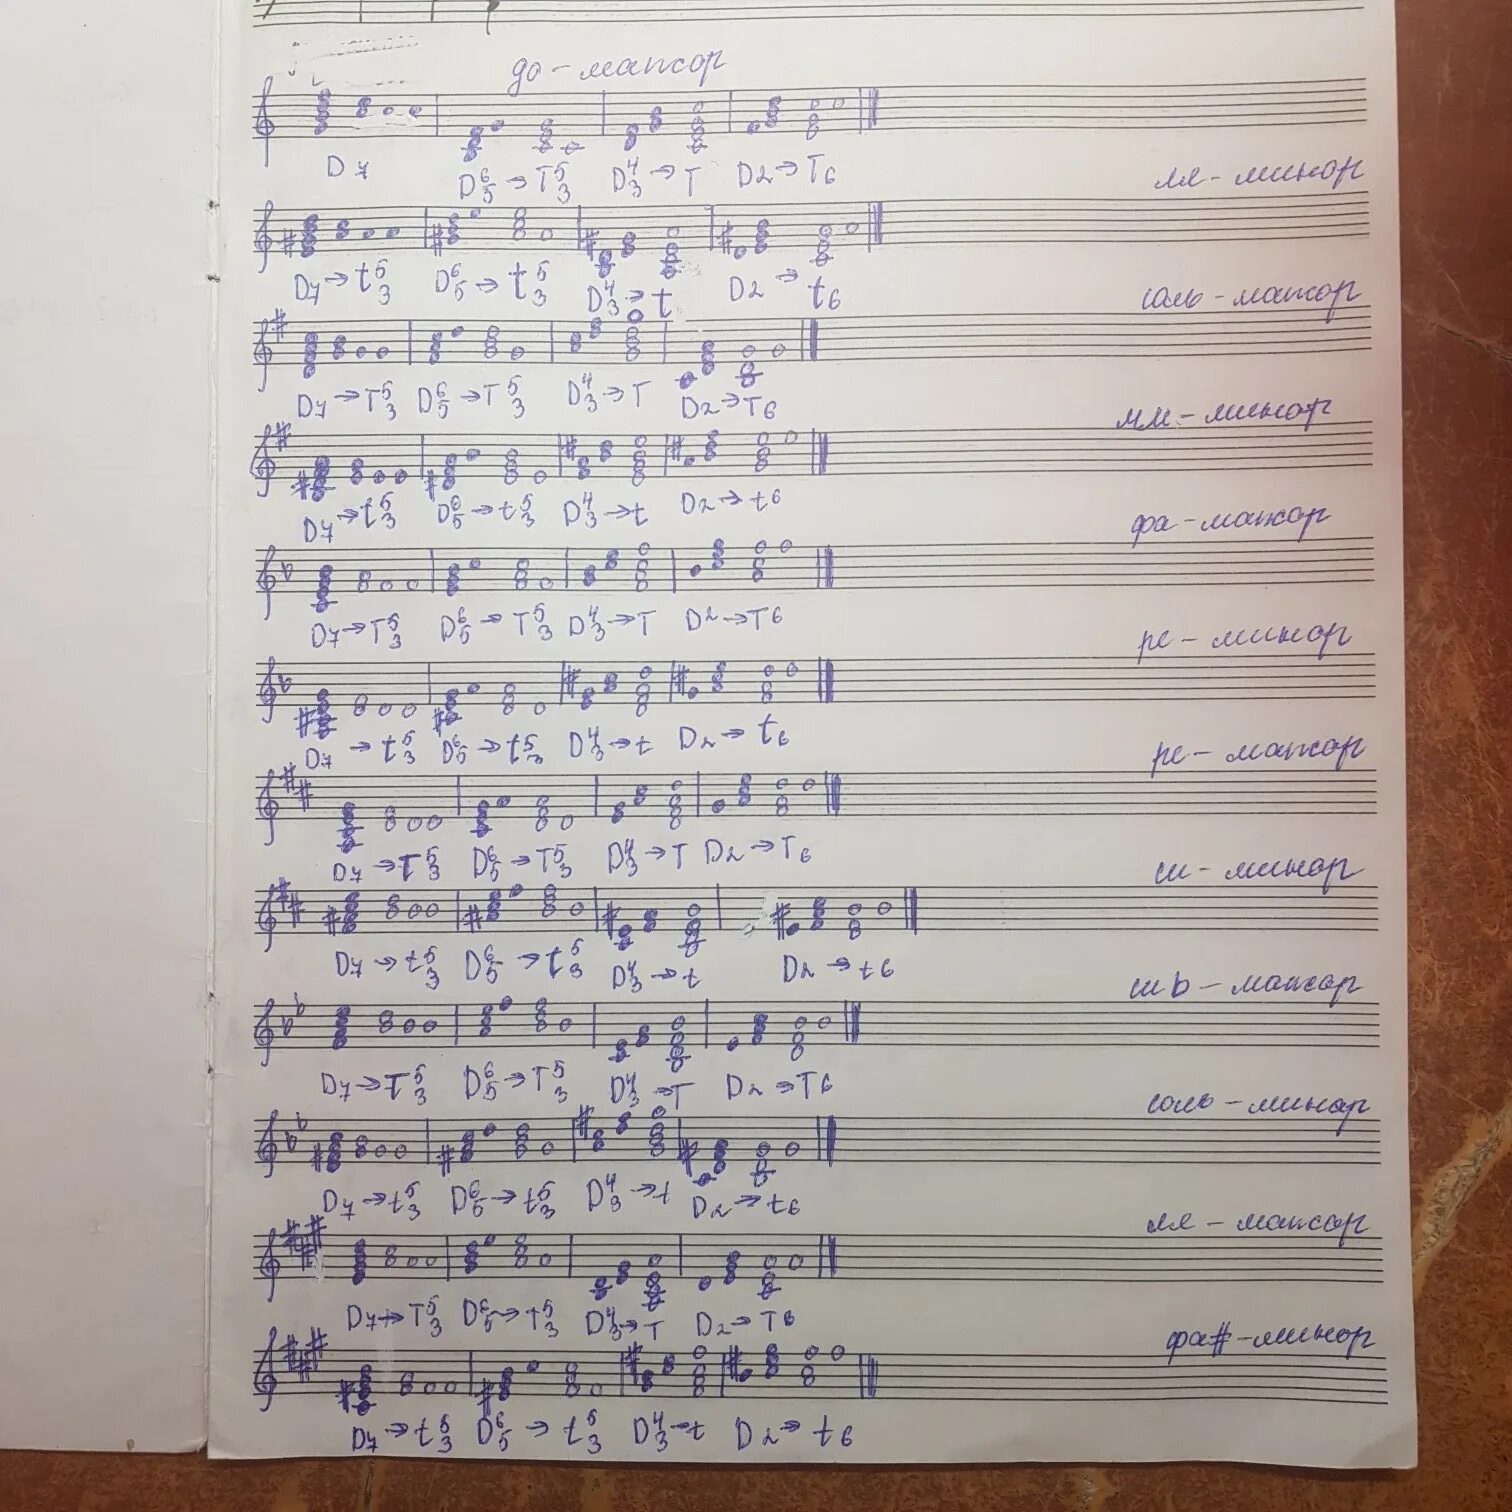 до-мажор
D7 D6/5→T5/3 D4/3→T D2→T6
ля-минор
D7→t5/3 D6/5→t5/3 D4/3→t D2→t6
соль-мажор
D7→T5/3 D6/5→T5/3 D4/3→T D2→T6
ми-минор
D7→t5/3 D6/5→t5/3 D4/3→t D2→t6
фа-мажор
D7→T5/3 D6/5→T5/3 D4/3→T D2→T6
ре-минор
D7→t5/3 D6/5→t5/3 D4/3→t D2→t6
ре-мажор
D7→T5/3 D6/5→T5/3 D4/3→T D2→T6
си-минор
D7→t5/3 D6/5→t5/3 D4/3→t D2→t6
сиb-мажор
D7→T5/3 D6/5→T5/3 D4/3→T D2→T6
соль-минор
D7→t5/3 D6/5→t5/3 D4/3→t D2→t6
ля-мажор
D7→T5/3 D6/5→T5/3 D4/3→T D2→T6
фа#-минор
D7→t5/3 D6/5→t5/3 D4/3→t D2→t6